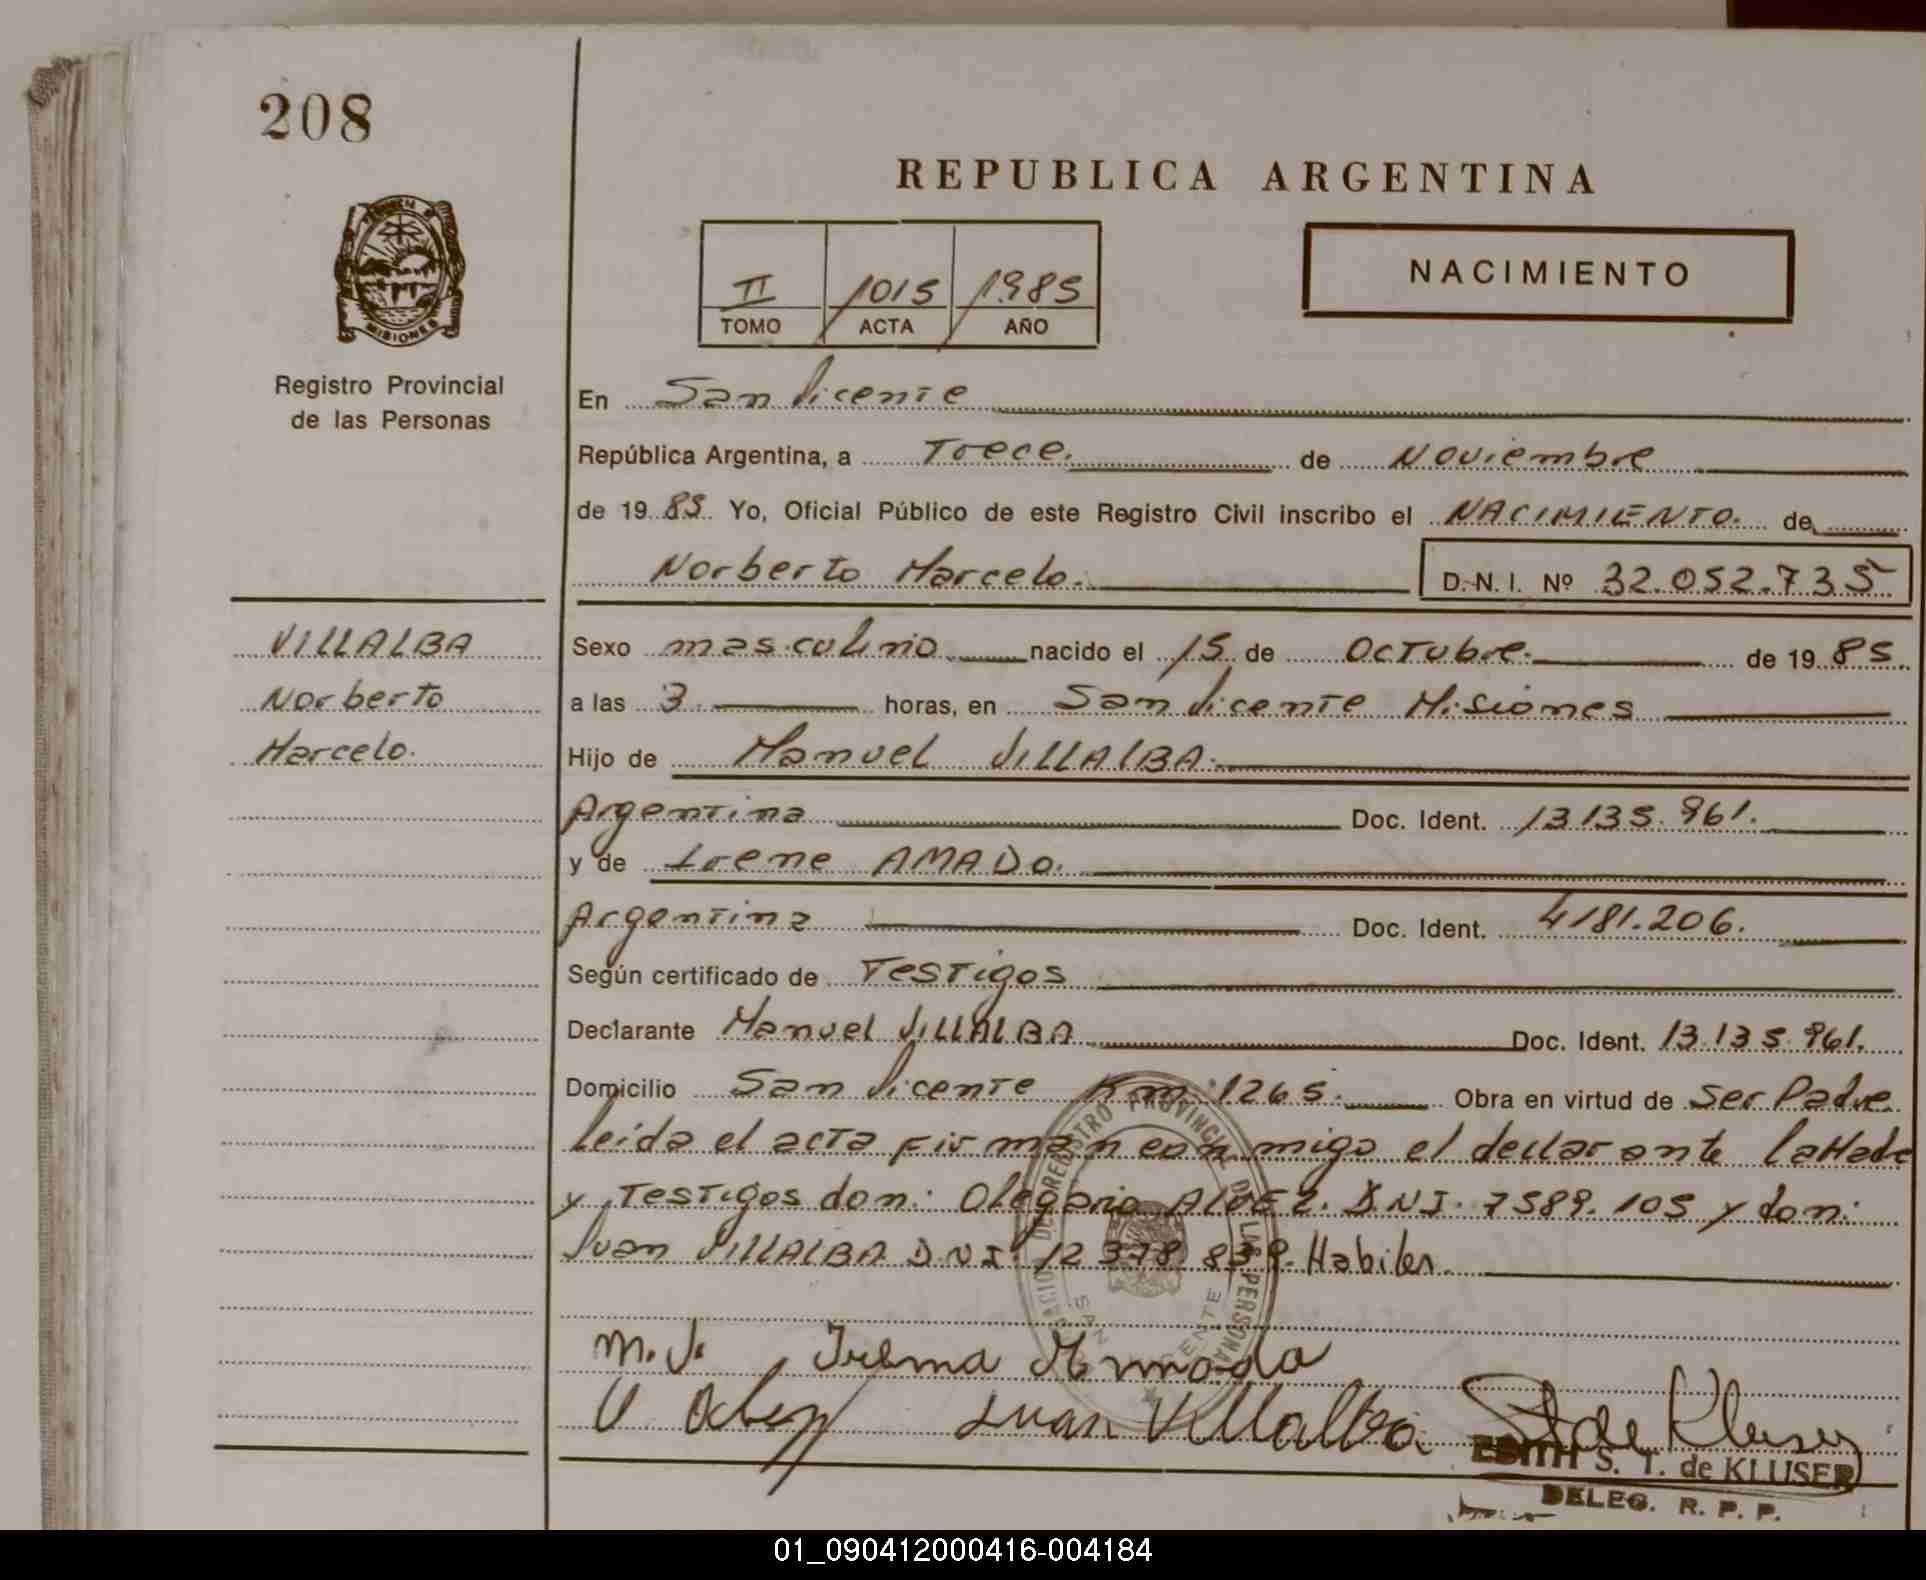 208
REPUBLICA ARGENTINA
II 1015 1985
TOMO ACTA AÑO
NACIMIENTO
MISIONES
Registro Provincial
de las Personas
En San Vicente
República Argentina, a Trece. de Noviembre
de 19 85 Yo, Oficial Público de este Registro Civil inscribo el NACIMIENTO. de
Norberto Marcelo. D.N.I. Nº 32.052.735
VILLALBA
Norberto
Marcelo.
Sexo masculino nacido el 15 de Octubre. de 19 85
a las 3 horas, en San Vicente Misiones
Hijo de Manuel VILLALBA.
Argentina Doc. Ident. 13.135.961.
y de Irene AMADO.
Argentina Doc. Ident. 4181.206.
Según certificado de Testigos
Declarante Manuel VILLALBA Doc. Ident. 13.135.961.
Domicilio San Vicente Km. 1265. Obra en virtud de Ser Padre
leída el acta firman conmigo el declarante la Madre
y Testigos don: Olegario D.N.I. 7589.105 y don:
Juan VILLALBA D.N.I. 12.378.839. Habiles.
REGISTRO PROVINCIAL DE LAS PERSONAS
SAN VICENTE
M. V.
Juan Villalba
EDITH S. T. de KLUSER
DELEG. R. P. P.
01_090412000416-004184